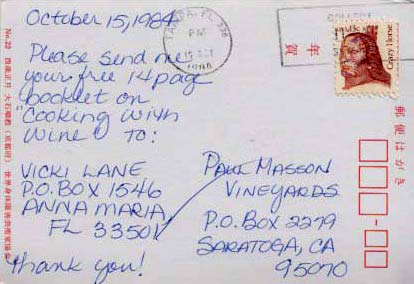 October 15, 1984
Please send me
your free 14 page
booklet on
"Cooking With
Wine" to:
VICKI LANE
P.O. BOX 1546
ANNA MARIA,
FL 33501
Thank you!
PAUL MASSON
VINEYARDS
P.O. BOX 2279
SARATOGA, CA
95070
TAMPA, FL 336
PM
Crazy Horse
年賀
郵便はがき
No. 22